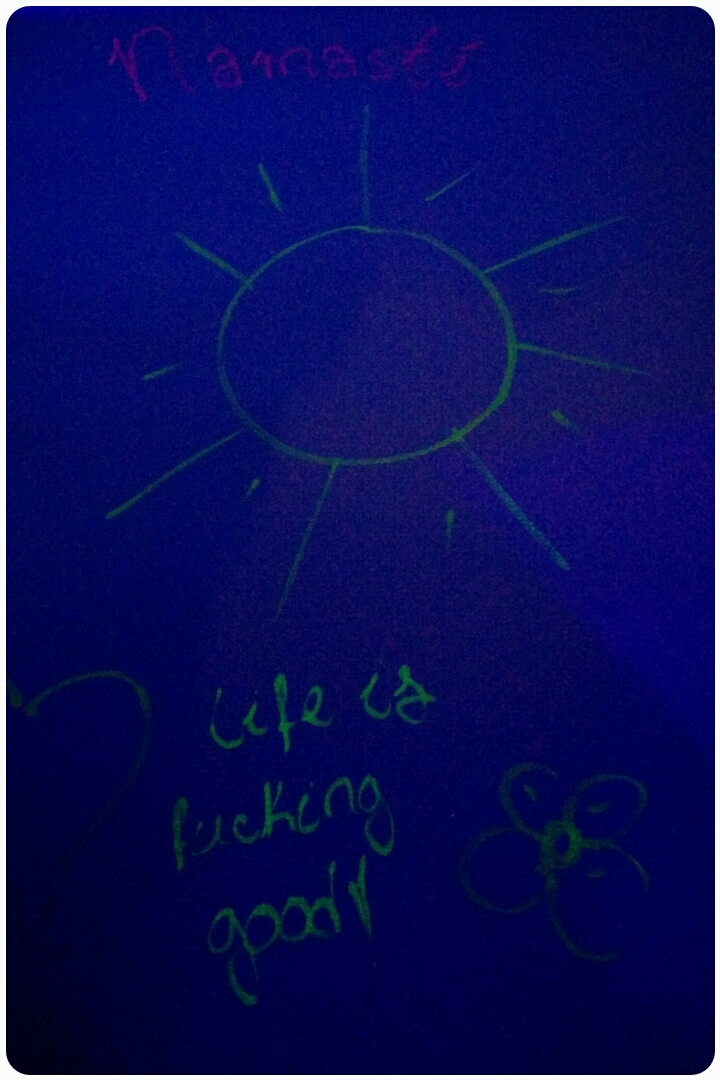 Namasté
Life is
fucking
good!